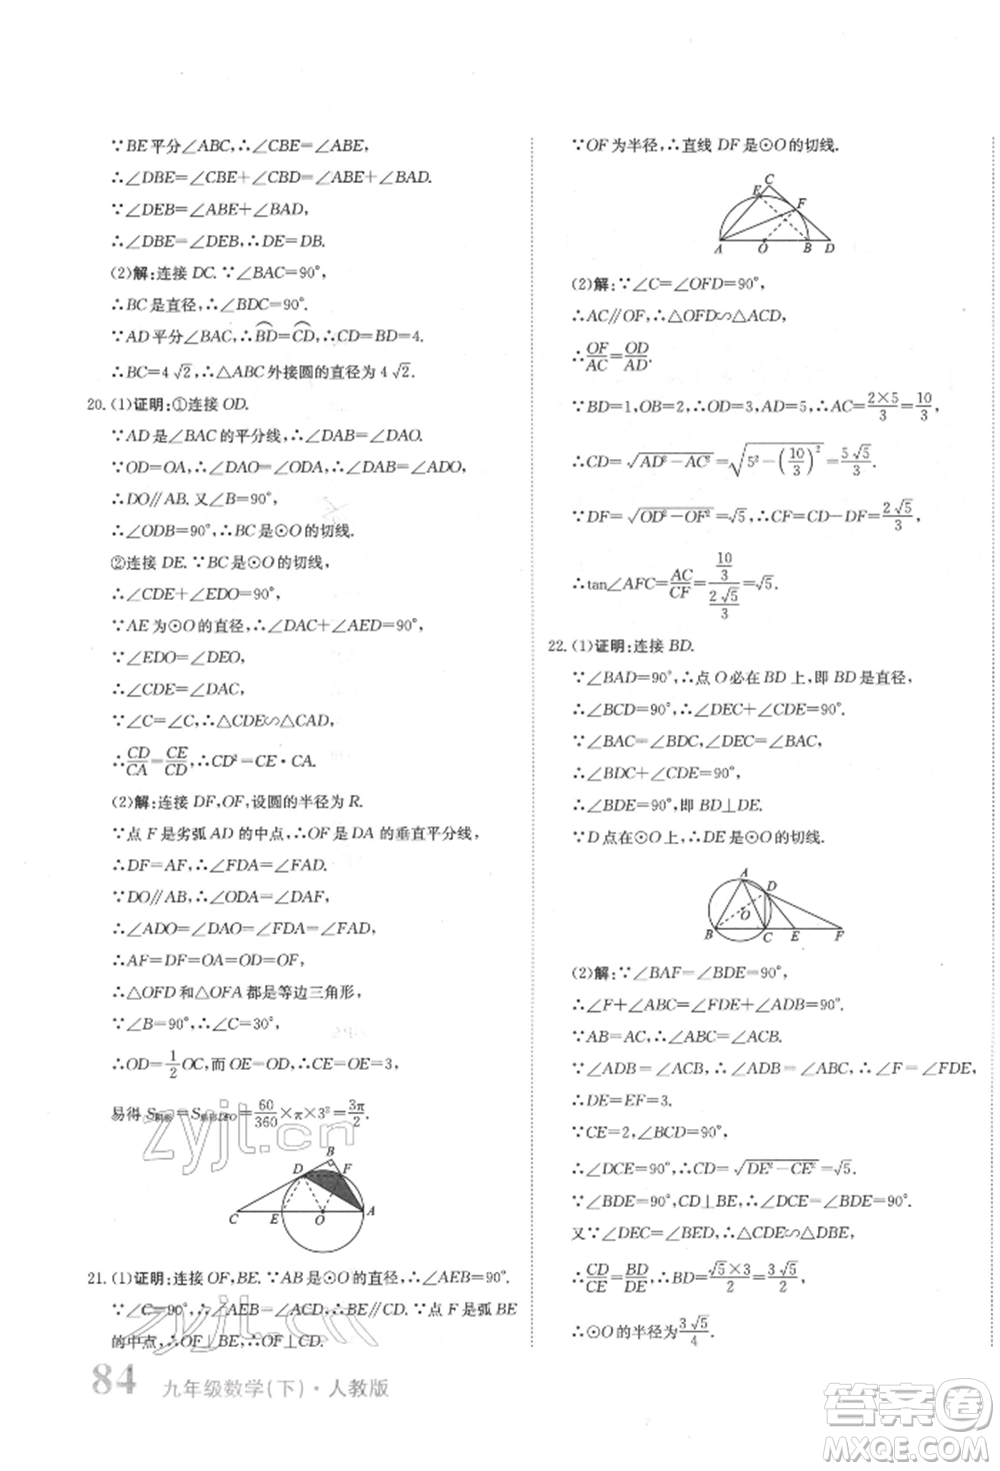 ∵BE平分∠ABC,∴∠CBE=∠ABE,
∴∠DBE=∠CBE+∠CBD=∠ABE+∠BAD.
∵∠DEB=∠ABE+∠BAD,
∴∠DBE=∠DEB,∴DE=DB.
(2)解:连接 DC.∵∠BAC=90°,
∴BC是直径,∴∠BDC=90°.
∵AD平分∠BAC,∴BD⌒=CD⌒,∴CD=BD=4.
∴BC=4√2,∴△ABC外接圆的直径为4√2.
20.(1)证明:①连接OD.
∵AD是∠BAC的平分线,∴∠DAB=∠DAO.
∵OD=OA,∴∠DAO=∠ODA,
∴DO∥AB.又∠B=90°,
∴∠ODB=90°,∴BC是⊙O的切线.
②连接DE.∵BC是⊙O的切线,
∴∠CDE+∠EDO=90°.
∵AE为⊙O的直径,∴∠DAC+∠AED=90°.
∵∠EDO=∠DEO,
∴∠CDE=∠DAC.
∵∠C=∠C,∴△CDE∽△CAD,
∴CD/CA=CE/CD,∴CD²=CE·CA.
(2)解:连接DF,OF,设圆的半径为R.
∵点F是劣弧AD的中点,∴OF是DA的垂直平分线,
∴DF=AF,∴∠FDA=∠FAD.
∵DO∥AB,∴∠ODA=∠DAF,
∴∠ADO=∠DAO=∠FDA=∠FAD,
∴AF=DF=OA=OD,
∴△OFD和△OFA都是等边三角形,
∵∠B=90°,∴∠C=30°,
∴OD=1/2OC,而OE=OD,∴CE=OE=R=3,
易得S阴影=S扇形DFO=60/360×π×3²=3π/2.
B
D
F
C
E
O
A
21.(1)证明:连接OF,BE.∵AB是⊙O的直径,∴∠AEB=90°.
∵∠C=90°,∴∠AEB=∠ACD,∴BE∥CD.∵点F是弧BE
的中点,∴OF⊥BE,∴OF⊥CD.
84 九年级数学(下)·人教版
∵OF为半径,∴直线DF是⊙O的切线.
E
C
F
A
O
B
D
(2)解:∵∠C=∠OFD=90°,
∴AC∥OF,∴△OFD∽△ACD,
∴OF/AC=OD/AD.
∵BD=1,OB=2,∴OD=3,AD=5,∴AC=(2×5)/3=10/3,
∴CD=√(AD²-AC²)=√(5²-(10/3)²)=5√5/3.
∵DF=√(OD²-OF²)=√5,∴CF=CD-DF=2√5/3,
∴tan∠AFC=AC/CF=(10/3)/(2√5/3)=√5.
22.(1)证明:连接BD.
∵∠BAD=90°,∴点O必在BD上,即BD是直径,
∴∠BCD=90°,∴∠DEC+∠CDE=90°.
∵∠BAC=∠BDC,∵∠DEC=∠BAC,
∴∠BDC+∠CDE=90°,
∴∠BDE=90°,即BD⊥DE.
∵D点在⊙O上,∴DE是⊙O的切线.
A
D
O
B
C
E
F
(2)解:∵∠BAF=∠BDE=90°,
∴∠F+∠ABC=∠FDE+∠ADB=90°.
∵AB=AC,∴∠ABC=∠ACB.
∵∠ADB=∠ACB,∴∠ADB=∠ABC,∴∠F=∠FDE,
∴DE=EF=3.
∵CE=2,∠BCD=90°,
∴∠DCE=90°,∴CD=√(DE²-CE²)=√5.
∵∠BDE=90°,CD⊥BE,∴∠DCE=∠BDE=90°.
又∵∠DEC=∠BED,∴△CDE∽△DBE,
∴CD/CE=BD/DE,∴BD=(√5×3)/2=3√5/2,
∴⊙O的半径为3√5/4.
zyjl.cn
zyjl.cn
答案圈
MXQE.COM